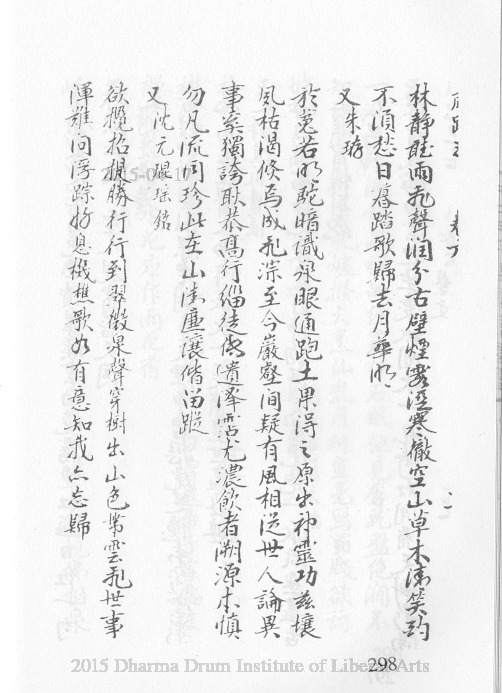 林靜雨飛聲澗分古壁煙霞溼寒徹空山草木清笑約
不須愁日暮踏歌歸去月華明
又朱
於菟若明駝暗識泉眼通跑土果得之原出神靈功茲壤
夙枯渴倏焉成飛淙至今巖壑間疑有風相從世人論異
事奚獨誇耿恭高行緇徒傳遺澤霑尤濃飲者溯源本慎
勿凡流同珍此在山清廉讓偕留蹤
又沈元琨瑤銘
欲攬招提勝行行到翠微泉聲穿樹出山色帶雲飛世事
渾難問浮踪好息機樵歌如有意知我亦忘歸
298
2015 Dharma Drum Institute of Liberal Arts